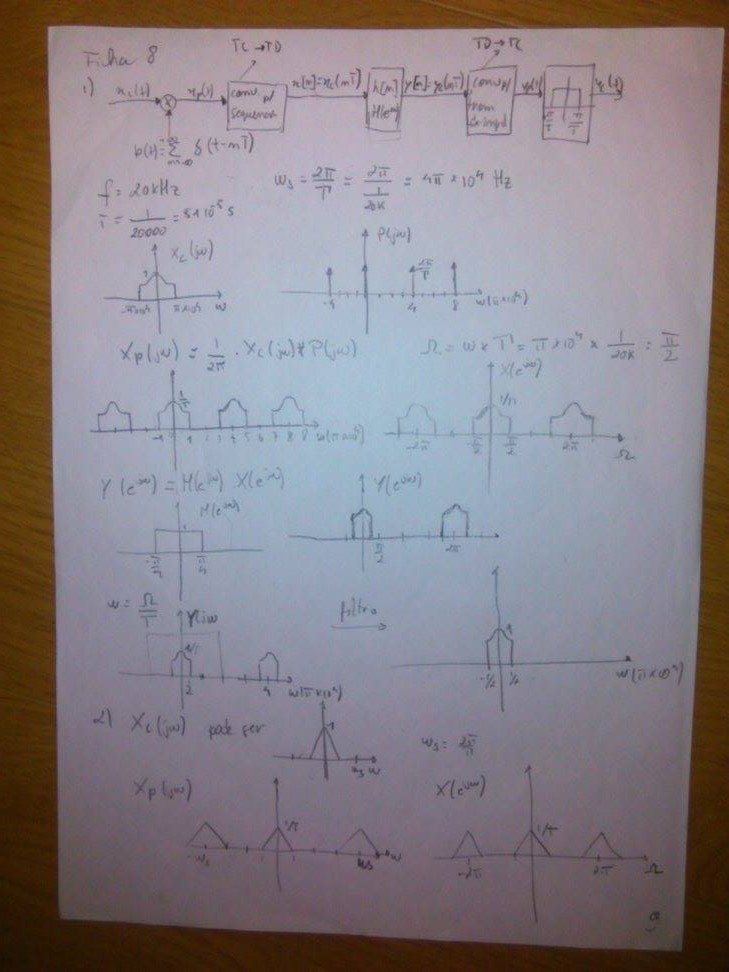 Ficha 8
TC → TD
TD → TC
1) x_c(t) x_p(t) conv. p/ sequência x[n]=x_c(nT) h[n] H(e^jω) y[n]=y_c(nT) conv p/ y_p(t) π/T π/T y_c(t)
p(t)=Σ δ(t-nT)
f = 20kHz
ω_s = 2π/T = 2π/(1/20k) = 4π × 10⁴ Hz
T = 1/20000 = 5×10⁻⁵ s
X_c(jω)
1
-π×10⁴ π×10⁴ ω
P(jω)
2π/T
-4 4 8 ω(π×10⁴)
X_p(jω) = 1/2π . X_c(jω) * P(jω)
Ω = ω × T = π×10⁴ × 1/20k = π/2
1/T
-1 0 1 2 3 4 5 6 7 8 9 ω(π×10⁴)
X(e^jω)
1/T
-2π -π/2 π/2 2π Ω
Y(e^jω) = H(e^jω) X(e^jω)
H(e^jω)
1
-π/4 π/4
Y(e^jω)
π/2 2π
ω = Ω/T
Y(jω)
1/T
2 4 ω(π×10⁴)
filtro
1
-1/2 1/2 ω(π×10⁴)
2) X_c(jω) pode ser
1
ω_s ω
ω_s = 2π/T
X_p(jω)
1/T
-ω_s ω_s ω
X(e^jω)
1/T
-2π 2π Ω